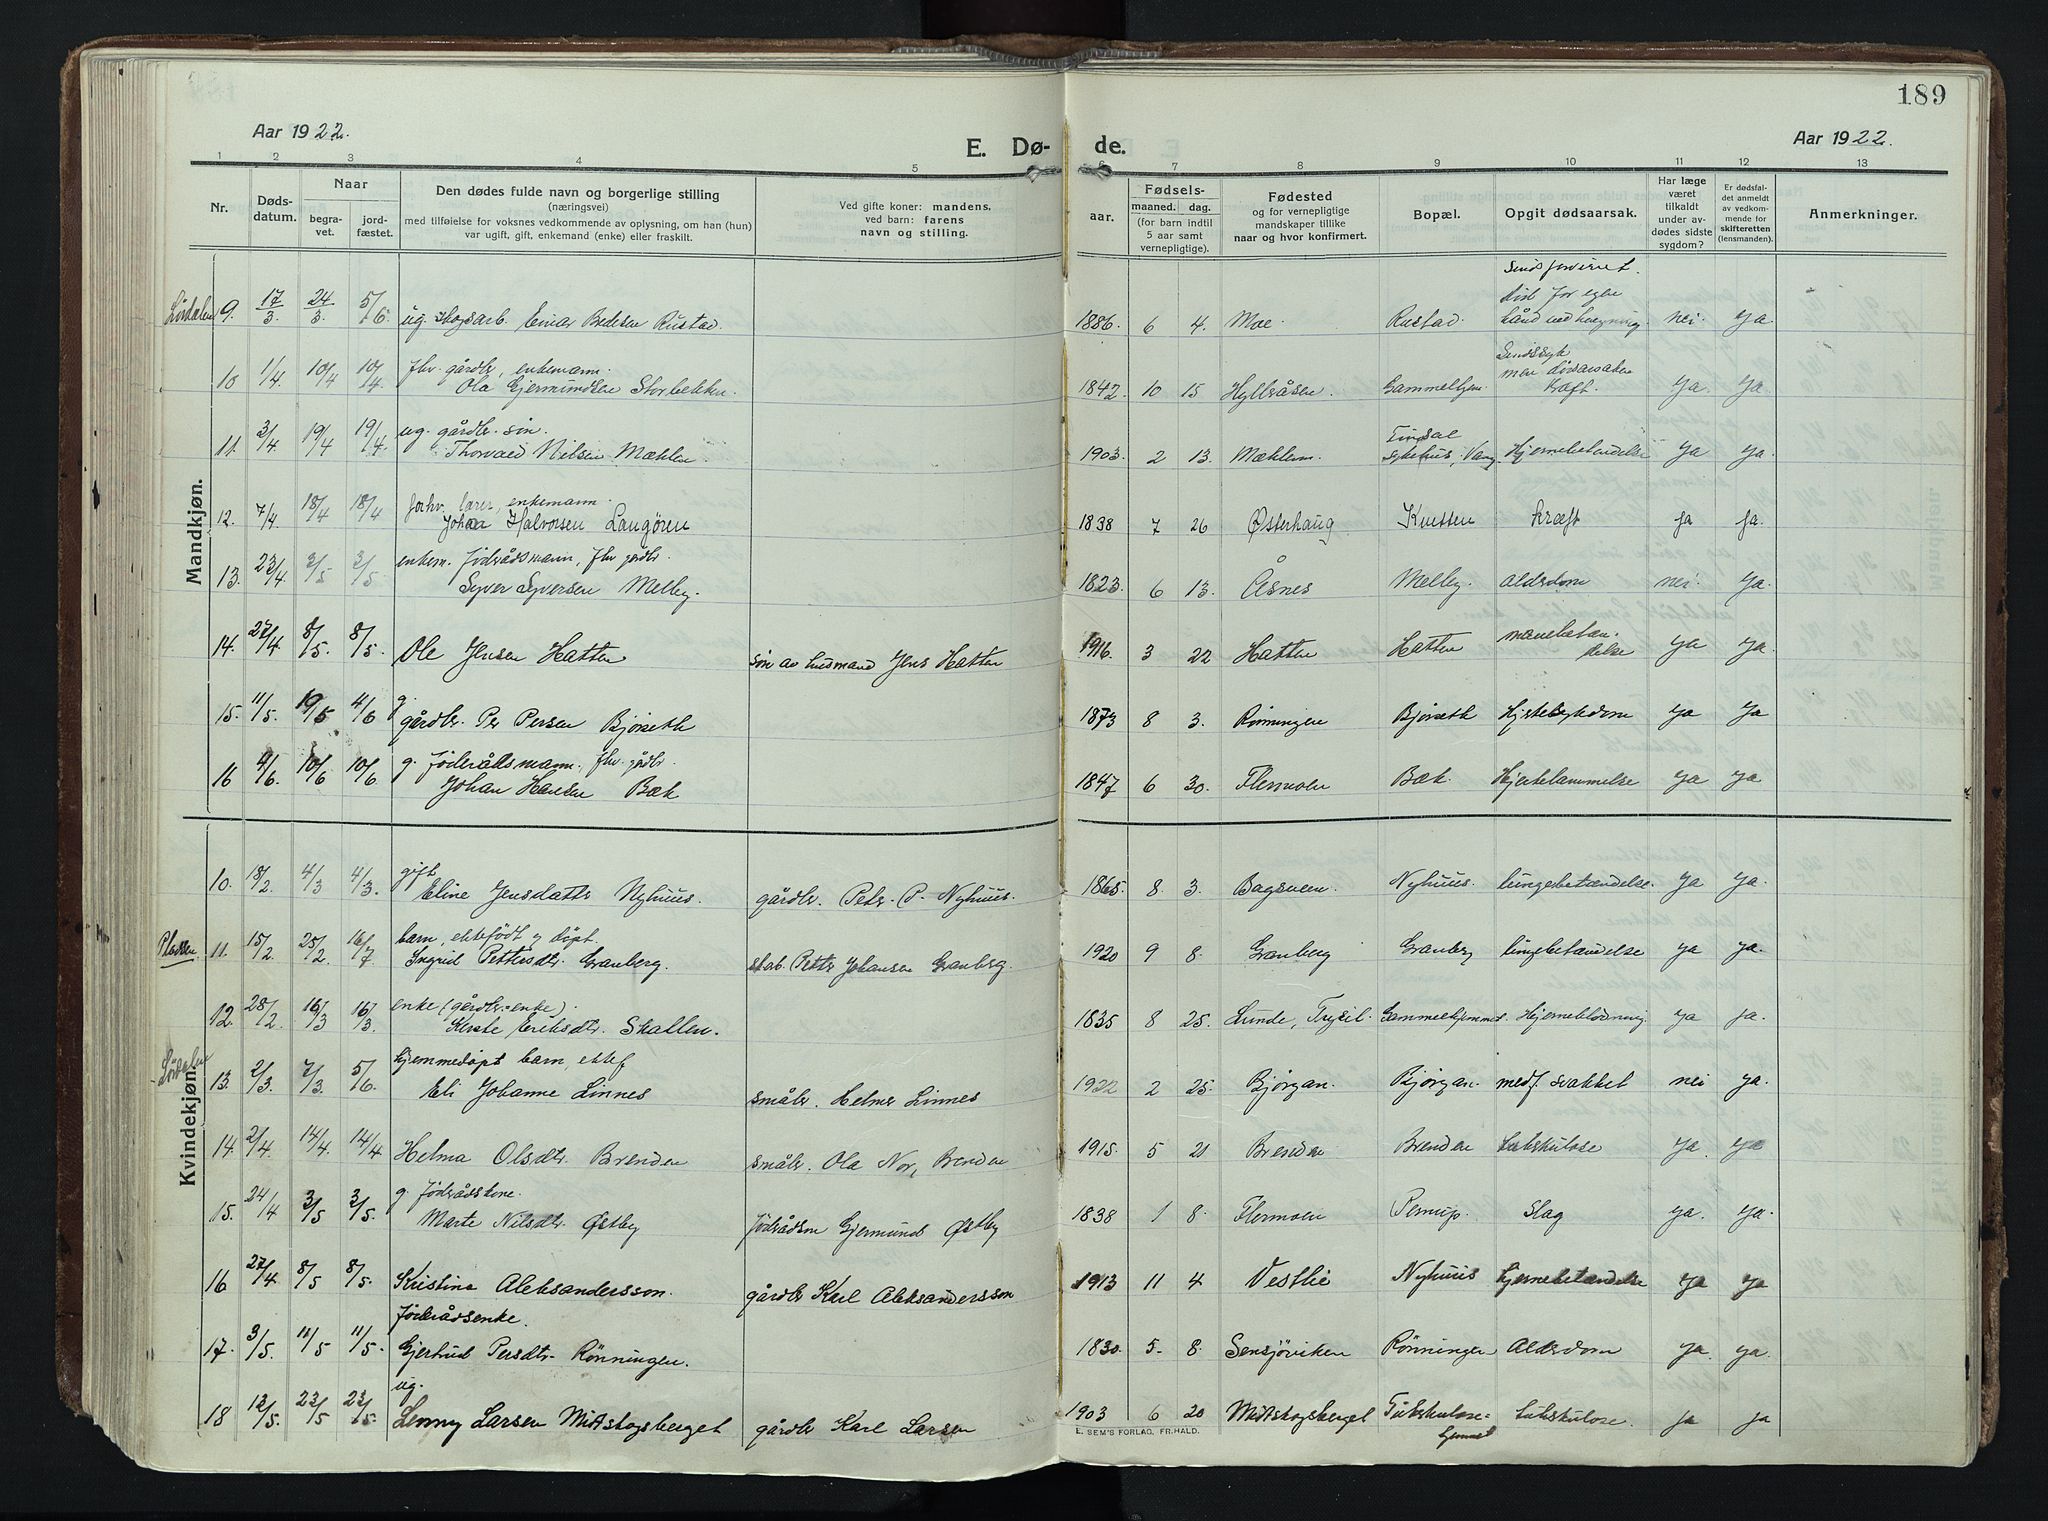 189
Aar 1922.
E. Dø-
de.
Aar 1922.
1 2 3 4 5 6 7 8 9 10 11 12 13
Nr.
Døds-
datum.
Naar
begra-
vet.
jord-
fæstet.
Den dødes fulde navn og borgerlige stilling
(næringsvei)
med tilføielse for voksnes vedkommende av oplysning, om han (hun)
var ugift, gift, enkemand (enke) eller fraskilt.
Ved gifte koner: mandens,
ved barn: farens
navn og stilling.
Fødsels-
aar.
maaned. dag.
(for barn indtil
5 aar samt
vernepligtige).
Fødested
og for vernepligtige
mandskaper tillike
naar og hvor konfirmert.
Bopæl.
Opgit dødsaarsak.
Har læge
været
tilkaldt
under av-
dødes sidste
sygdom?
Er dødsfal-
det anmeldt
av vedkom-
mende for
skifteretten
(lensmanden).
Anmerkninger.
Mandkjøn.
Sindsforvirret.
død for egen
9. 17/3. 24/3. 5/6. ug. skogsarb. Einar Bedesen Rustad. 1886 6 4. Moe. Rustad. hånd ved hengning nei. ja.
fhv. gårdbr., enkemann. Sindssyk
men dødsårsaken
10 1/4. 10/4 10/4. Ola Gjermundsen Storbekken. 1842 10 15 Hyllråsen. Gammelhjem. kræft. ja. ja.
ug. gårdbr. søn.
11. 3/4 19/4 19/4. Thorvald Nilsen Mæhlen. 1903. 2 13. Mæhlum. sykehus, Vang Hjernebetendelse ja ja.
forhv. lærer, enkemann.
12. 7/4. 18/4 18/4 Johan Halvorsen Langören 1838 7 26 Østerhaug Kvetten kræft ja ja.
enkem. föderådsmann, fhv. gårdbr.
13. 23/4 3/5 3/5. Syver Syversen Melby. 1823. 6 13. Åsnes Melby. alderdom nei. ja.
14. 27/4 8/5. 8/5. Ole Jensen Hatten søn av husmand Jens Hatten 1916. 3 22 Hatten Hatten mavebetæn-
delse ja ja.
g.
15. 11/5. 19/5 4/6 gårdbr. Per Persen Bjørseth 1873 8 3. Rønningen Bjørseth Hjertesykdom ja ja
g. föderådsmann, fhv. gårdbr.
16 4/6. 10/6 10/6 Johan Hansen Bæk 1847 6 30. Flermoen Bæk. Hjertelammelse ja ja
Kvindekjøn.
gift
10. 18/2. 4/3 4/3. Eline Jensdatter Nyhuus. gårdbr. Peter P. Nyhuus. 1865. 8. 3. Bagsveen. Nyhuus. lungebetændelse. ja ja.
barn, ektefödt og döpt.
Pladsen. 11. 15/2. 25/2 16/7 Ingrid Pettersdtr. Granberg. Petter Johansen Granberg. 1920 9 8. Granberg Granberg lungebetændelse ja ja.
enke (gårdbr. enke).
12. 28/2 16/3 16/3. Kerste Eriksdtr. Skallen. 1835 8 25. Lunde, Trysil. Gammelhjemmet. Hjerneblødning ja ja.
hjemmedöpt barn, ektef
13. 2/3. 7/3. 5/6 Eli Johanne Linnes småbr. Helmer Linnes 1922 2 25. Bjørgan. Bjørgan. medf. svakhet nei ja.
14. 2/4. 14/4. 14/4 Helma Olsdtr. Brenden småbr. Ola Nor, Brenden 1915. 5 21 Brenden Brenden Tuberkulose ja. ja
g. föderådskone.
15. 24/4 3/5 3/5. Marte Nilsdtr. Østby föderådsm Gjermund Østby 1838 1 8. Flermoen Pernup. Slag ja. ja.
16 27/4 8/5 8/5. Kristine Aleksandersson. gårdbr Karl Aleksandersson 1913 11 4 Vestlie Nyhuus hjernebetændelse ja ja
föderådsenke.
17. 3/5. 11/5 11/5. Gjertrud Persdtr. Rönningen. 1830. 5. 8. Sensjøviken Rønningen Alderdom ja. ja.
ug.
18 12/5. 22/5 22/5. Lenny Larsen Midtskogsberget gårdbr Karl Larsen 1903 6 20 Midtskogsberget Tuberkulose-
hjemmet tuberkulose. ja ja
E. SEM'S FORLAG, FR.HALD.